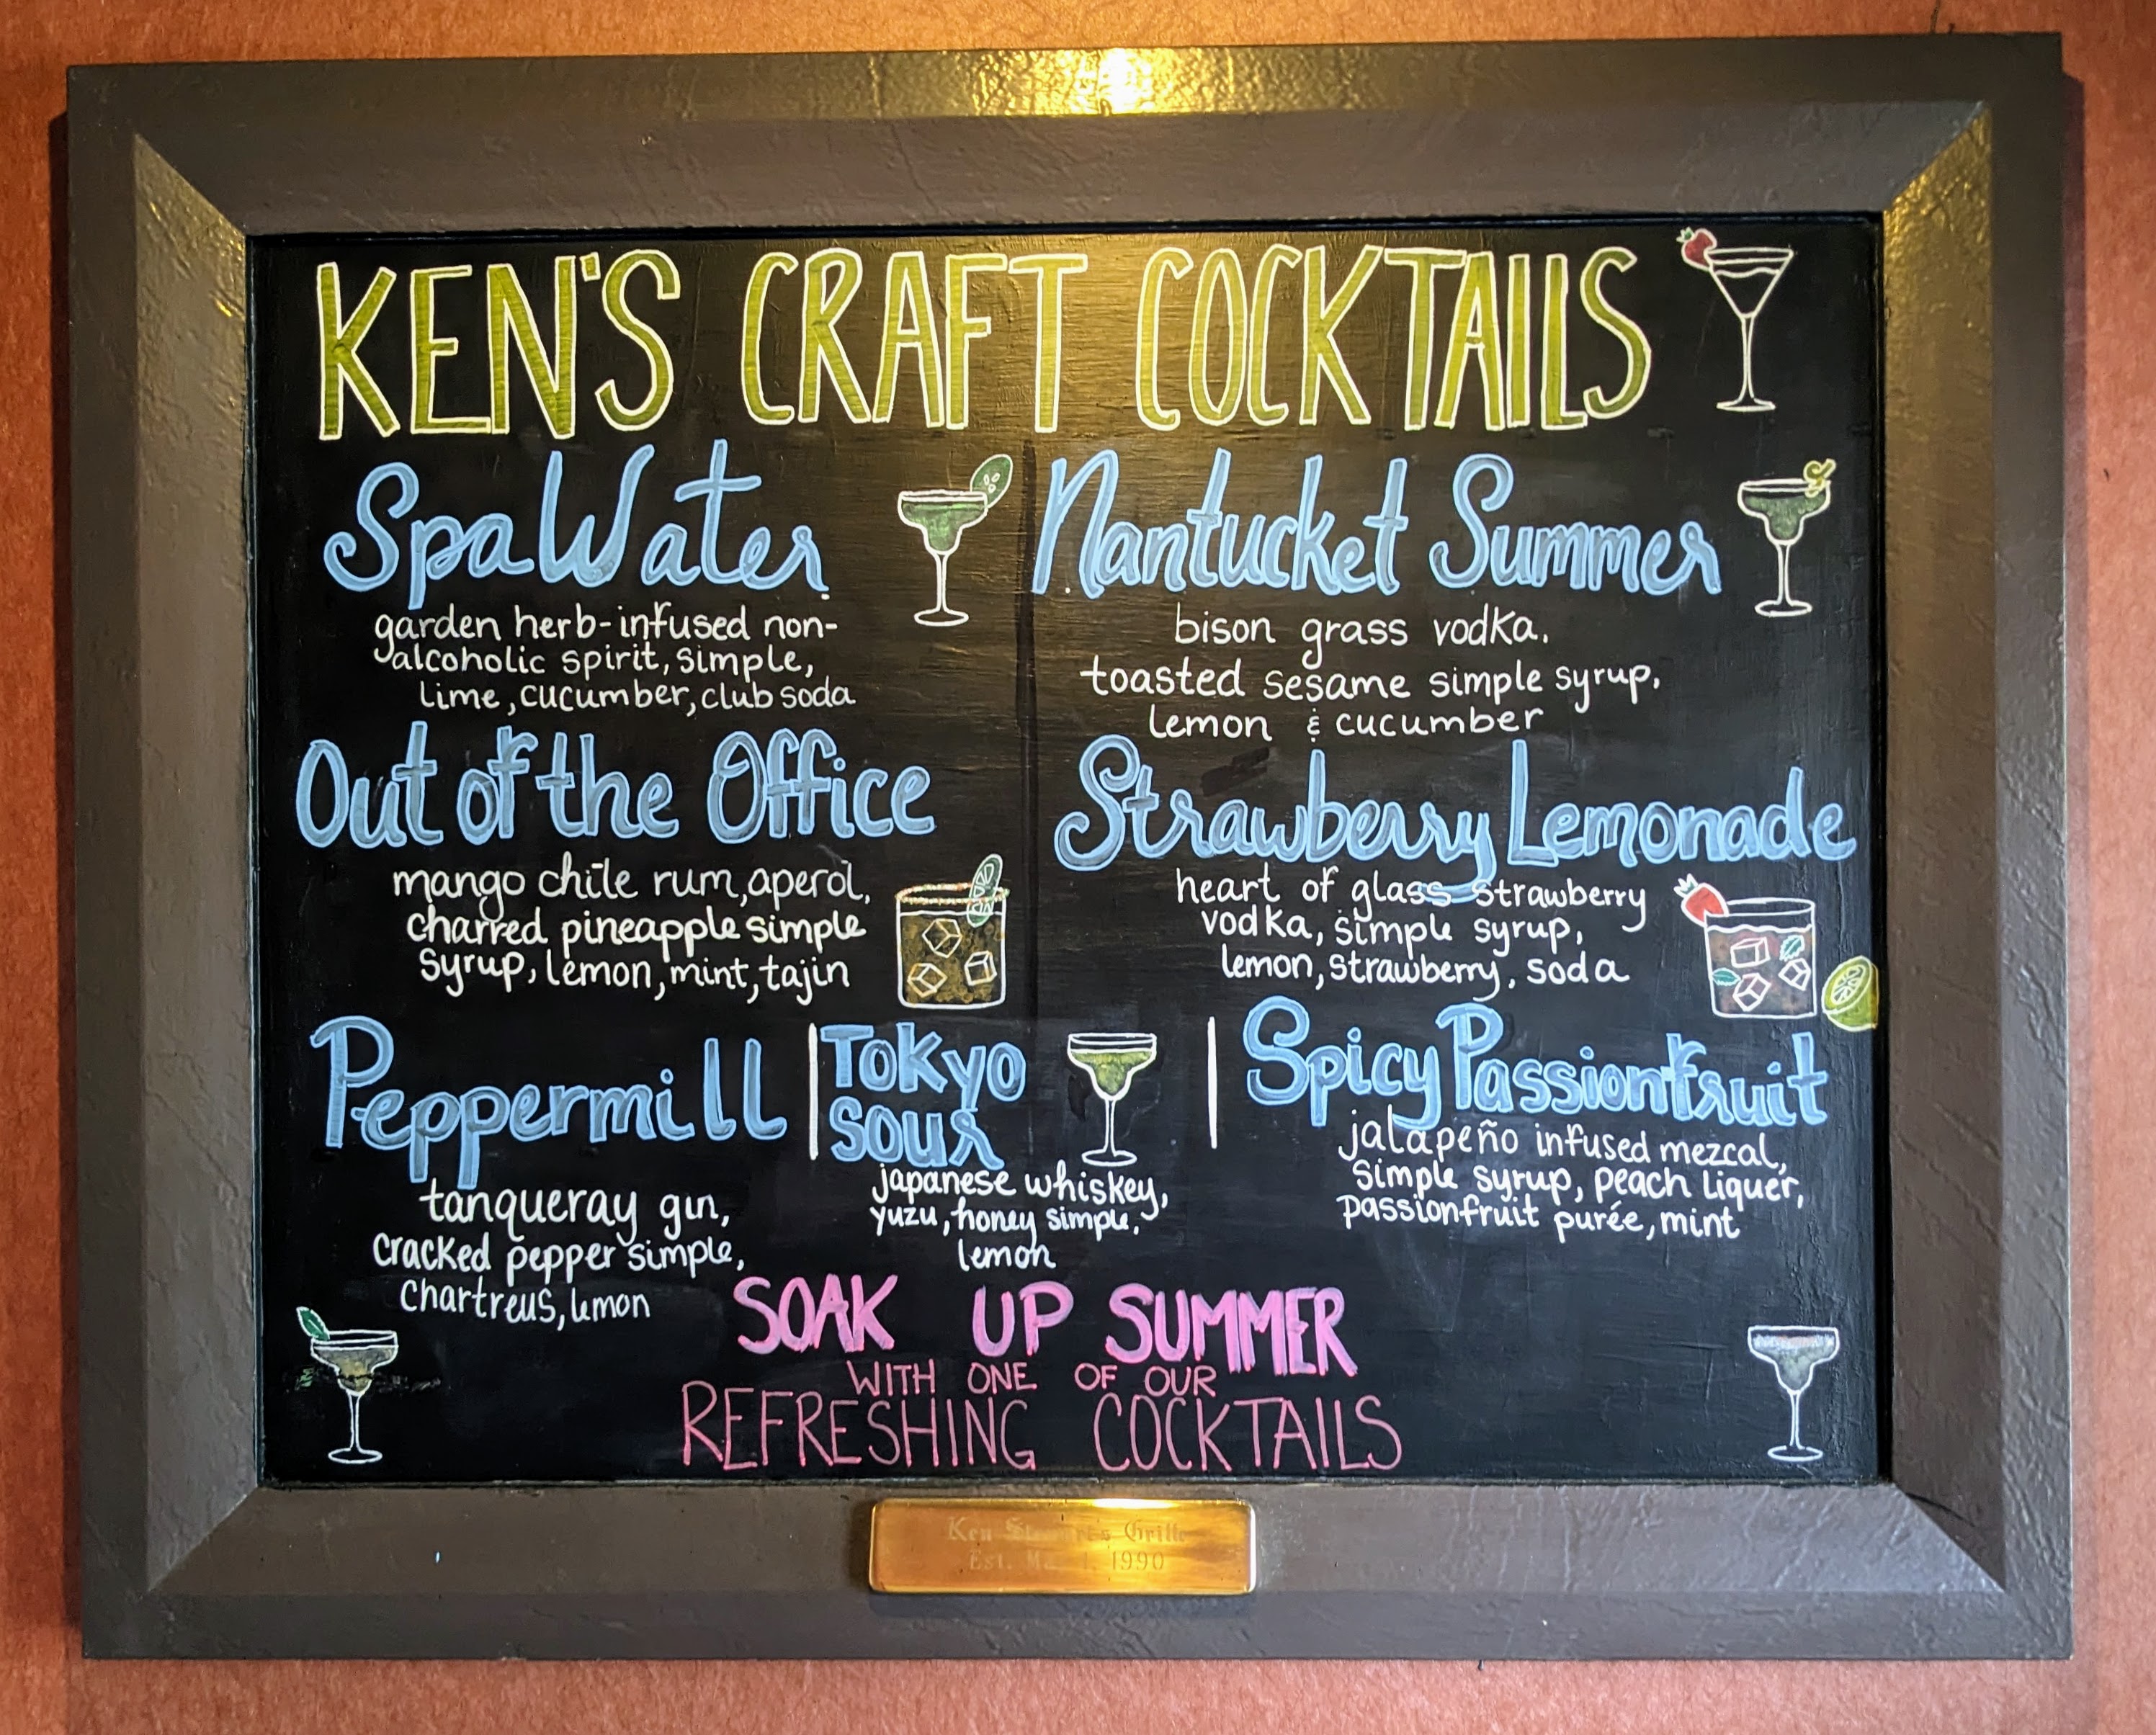 KEN'S CRAFT COCKTAILS
Spa Water
garden herb-infused non-
alcoholic spirit, simple,
lime, cucumber, club soda
Nantucket Summer
bison grass vodka.
toasted sesame simple syrup,
lemon & cucumber
Out of the Office
mango chile rum, aperol,
charred pineapple simple
syrup, lemon, mint, tajin
Strawberry Lemonade
heart of glass strawberry
vodka, simple syrup,
lemon, strawberry, soda
Peppermill
tanqueray gin,
cracked pepper simple,
chartreus, lemon
TOKYO
SOUR
japanese whiskey,
yuzu, honey simple,
lemon
Spicy Passionfruit
jalapeño infused mezcal,
simple syrup, peach liquer,
passionfruit purée, mint
SOAK UP SUMMER
WITH ONE OF OUR
REFRESHING COCKTAILS
Ken Grille
Est. 1990